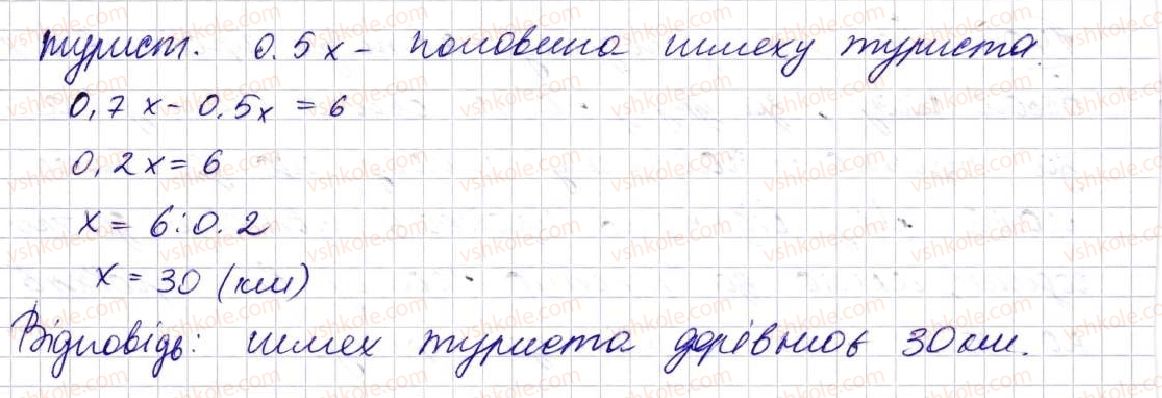 турист. 0.5x – половина шляху туриста.
0,7x – 0,5x = 6
0,2x = 6
x = 6 : 0.2
x = 30 (км)
Відповідь: шлях туриста дорівнює 30 км.